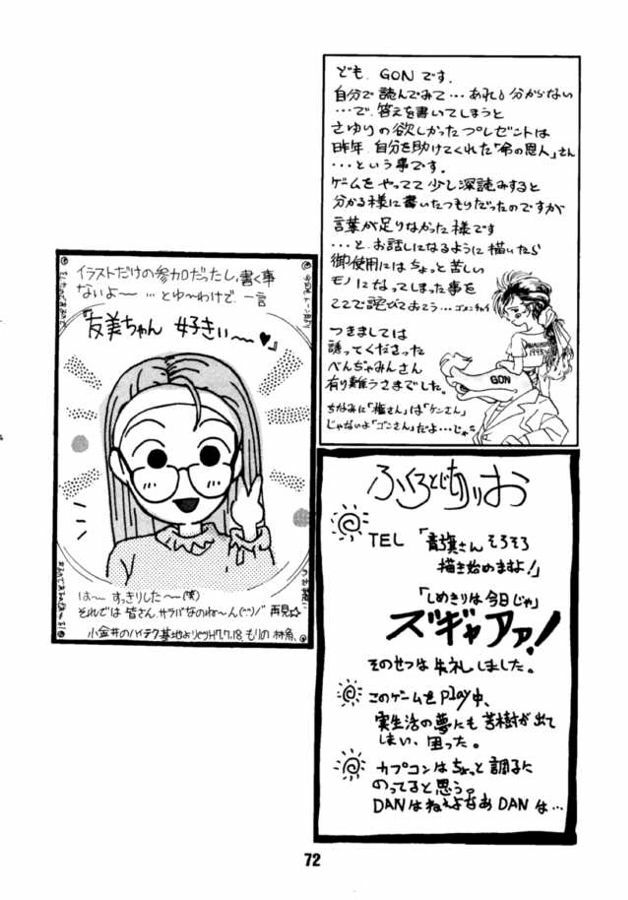 ども、GONです。
自分で読んでみて…あれ？分からない
…で、答えを書いてしまうと
さゆりの欲しかったプレゼントは
昨年、自分を助けてくれた「命の恩人」さん
…という事です。
ゲームをやってて少し深読みすると
分かる様に書いたつもりだったのですが
言葉が足りなかった様です
…と、お話しになるように描いたら
御使用にはちょっと苦しい
モノになってしまった事を
ここで詫びておこう…ゴメンネイ
つきましては
誘ってくださった
べんぢゃみんさん
有り難うさまでした。
ちなみに「権さん」は「ケンさん」
じゃないよ「ゴンさん」だよ…じゃ
GON
イラストだけの参加だったし、書く事
ないよ〜 …とゆ〜わけで 一言
『友美ちゃん 好きぃ〜♥』
は〜 すっきりした〜(笑)
それでは皆さん、サラバなのね〜ん(^^)/~ 再見☆
小金井のハイテク基地より H7.7.18. もりの
ふくろとじありお
TEL 「青旗さんそろそろ
描き始めますよ！」
「しめきりは今日じゃ」
ズギャアァ！
そのせつは失礼しました。
このゲームをplay中、
実生活の夢にも苦樹が出て
しまい、困った。
カプコンはちょっと調子に
のってると思う。
DANはねぇよなあDANは…
72